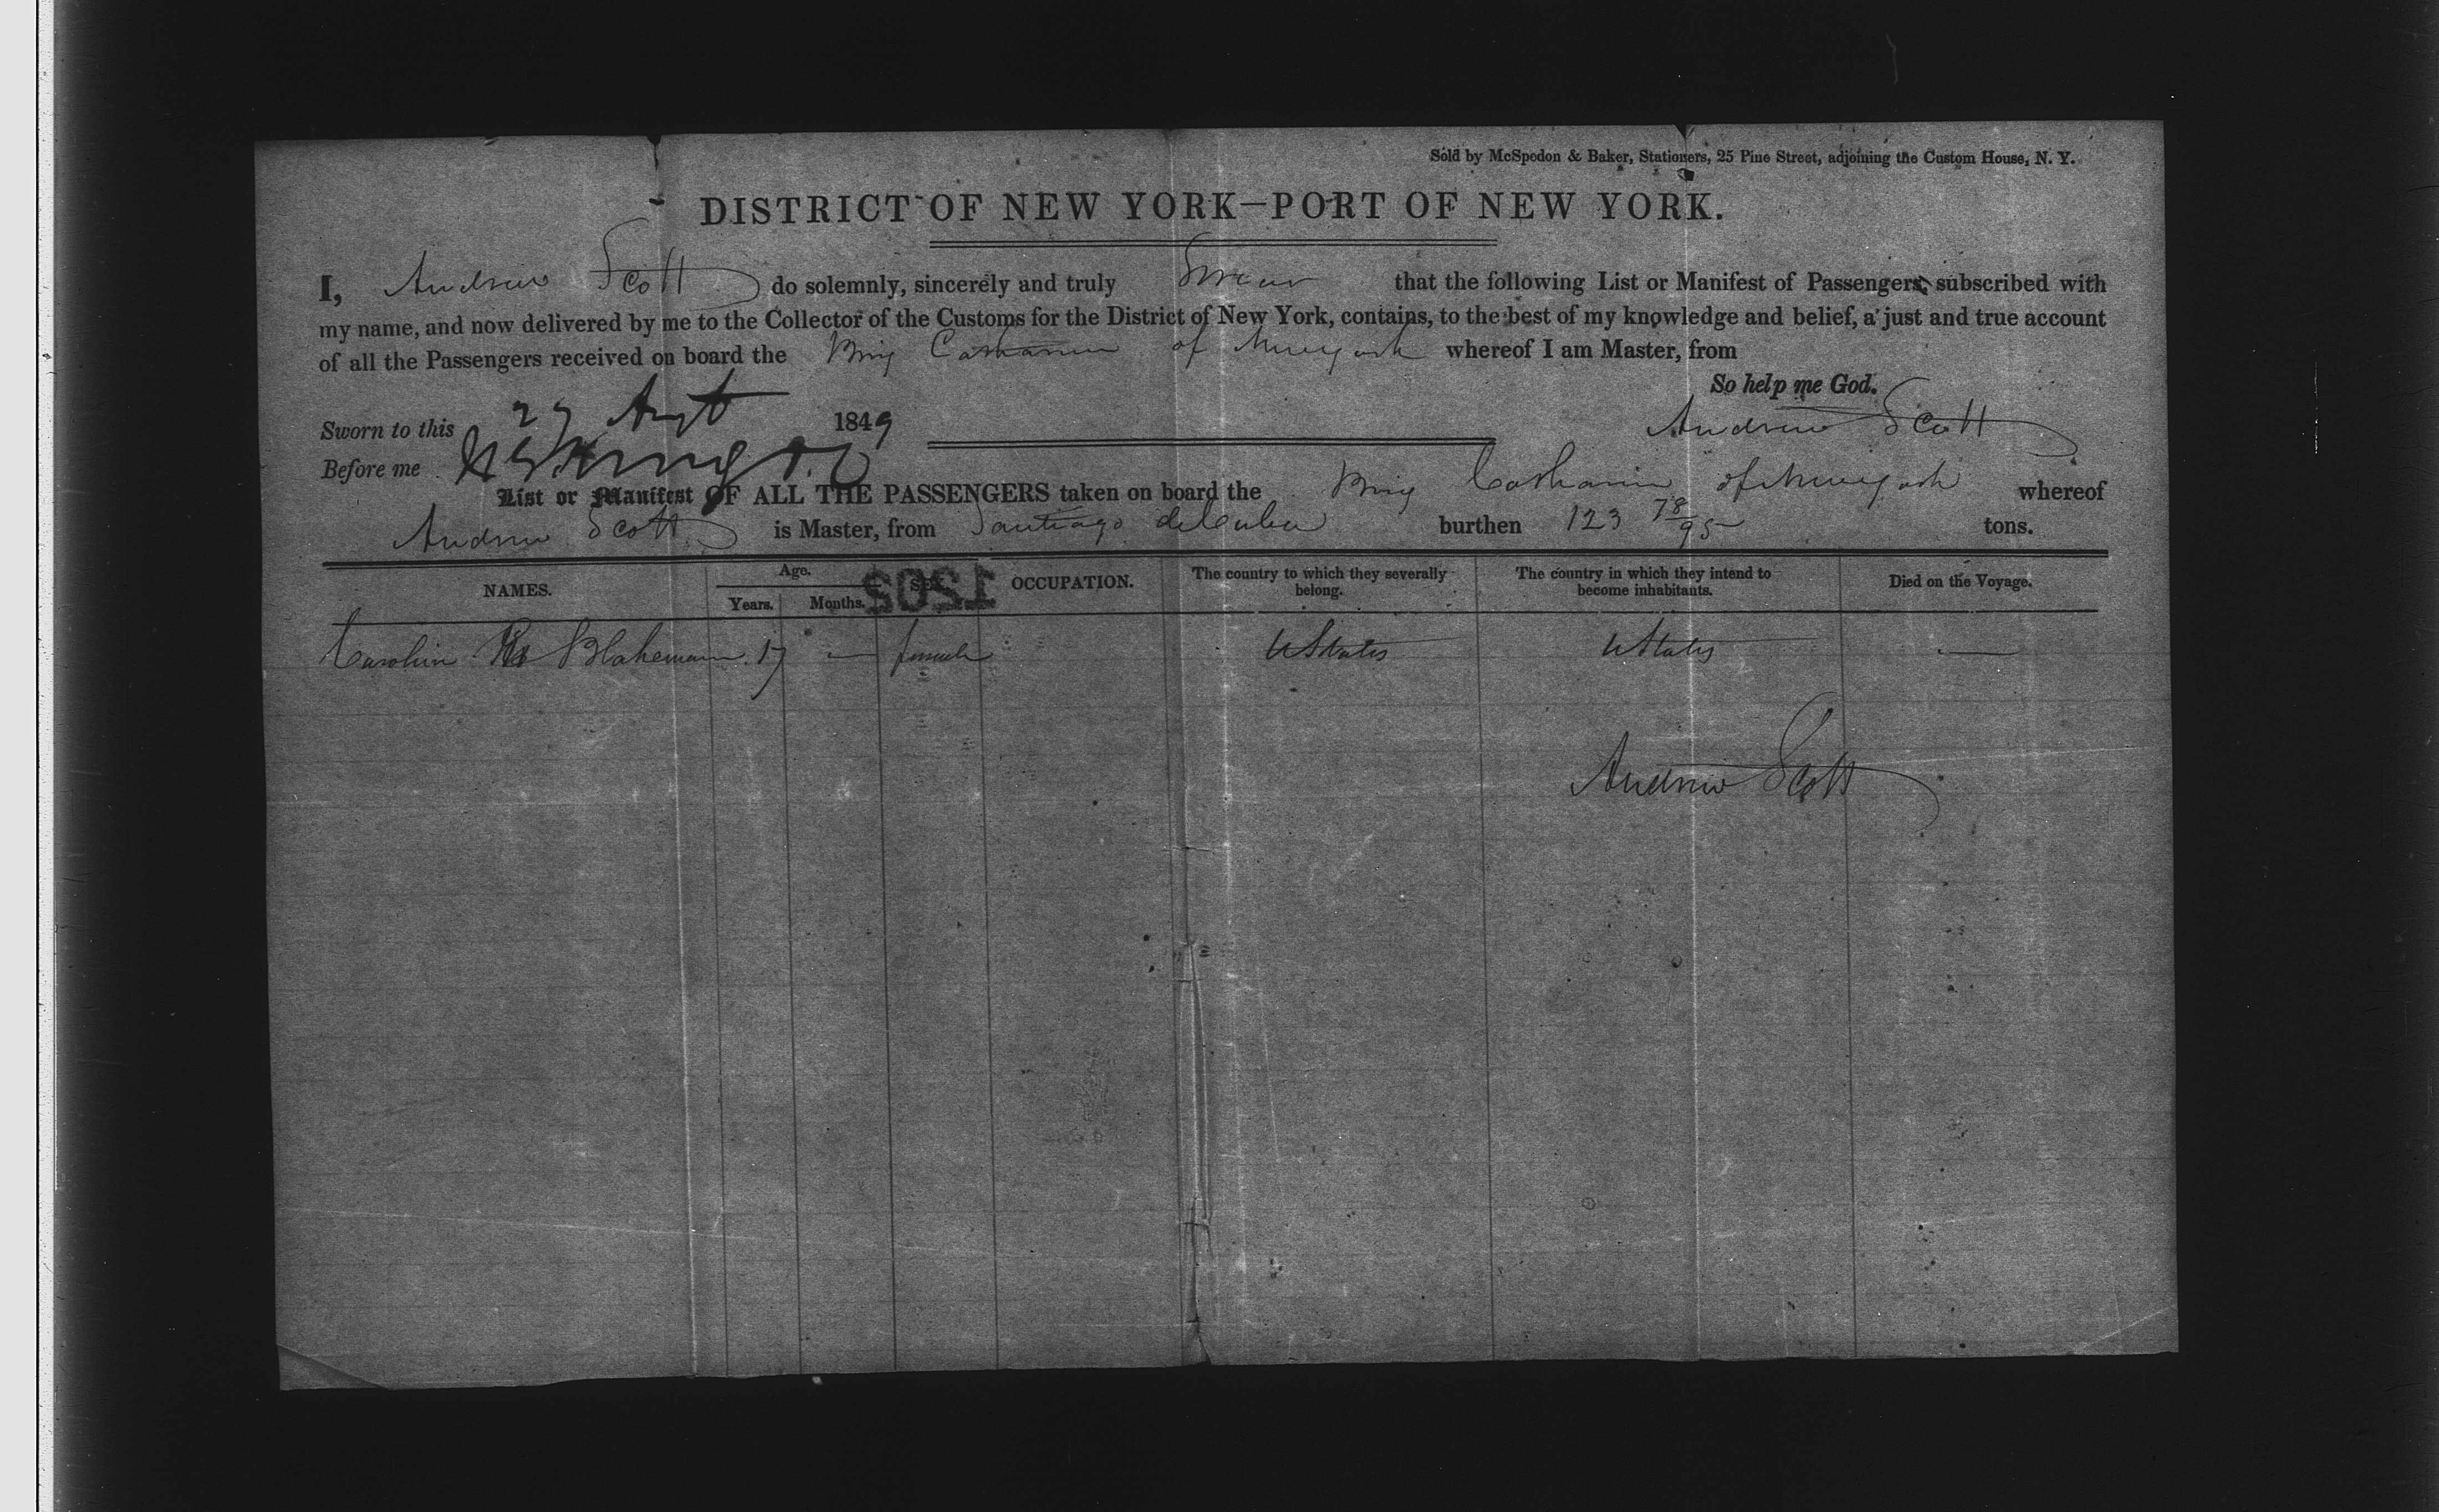 Sold by McSpedon & Baker, Stationers, 25 Pine Street, adjoining the Custom House, N. Y.
DISTRICT OF NEW YORK—PORT OF NEW YORK.
I, Andrew Scott do solemnly, sincerely and truly Swear that the following List or Manifest of Passengers, subscribed with
my name, and now delivered by me to the Collector of the Customs for the District of New York, contains, to the best of my knowledge and belief, a just and true account
of all the Passengers received on board the Brig of New york whereof I am Master, from
So help me God.
Sworn to this 29 Augt 1849
Andrew Scott
Before me
List or Manifest OF ALL THE PASSENGERS taken on board the Brig of New york whereof
Andrew Scott is Master, from Santiago de Cuba burthen 123 78/95 tons.
NAMES. Age. Years. Months. SEX. OCCUPATION. The country to which they severally belong. The country in which they intend to become inhabitants. Died on the Voyage.
1202
Carolin Blakemann 17 — female U States U States —
Andrew Scott